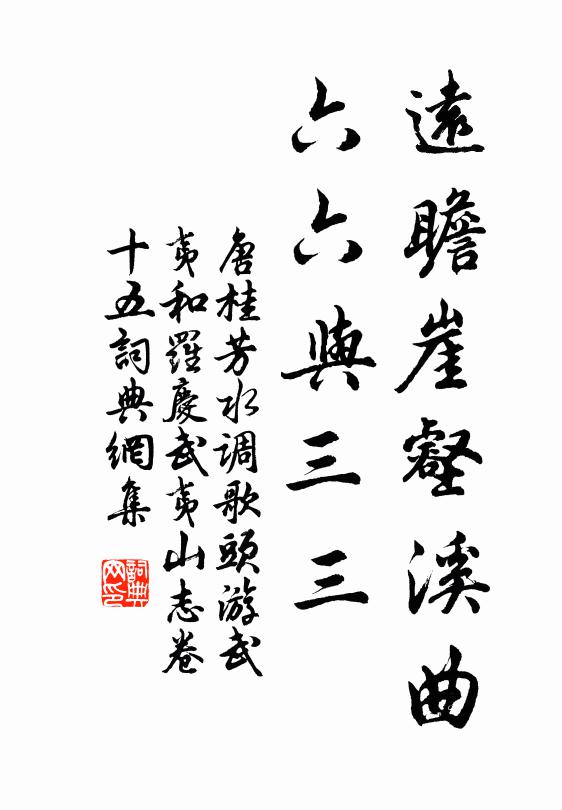 遠瞻崖壑溪曲
六六與三三
唐桂芳水调歌頭游武
夷和羅慶武夷山志卷
十五詞典網集
詞典网印